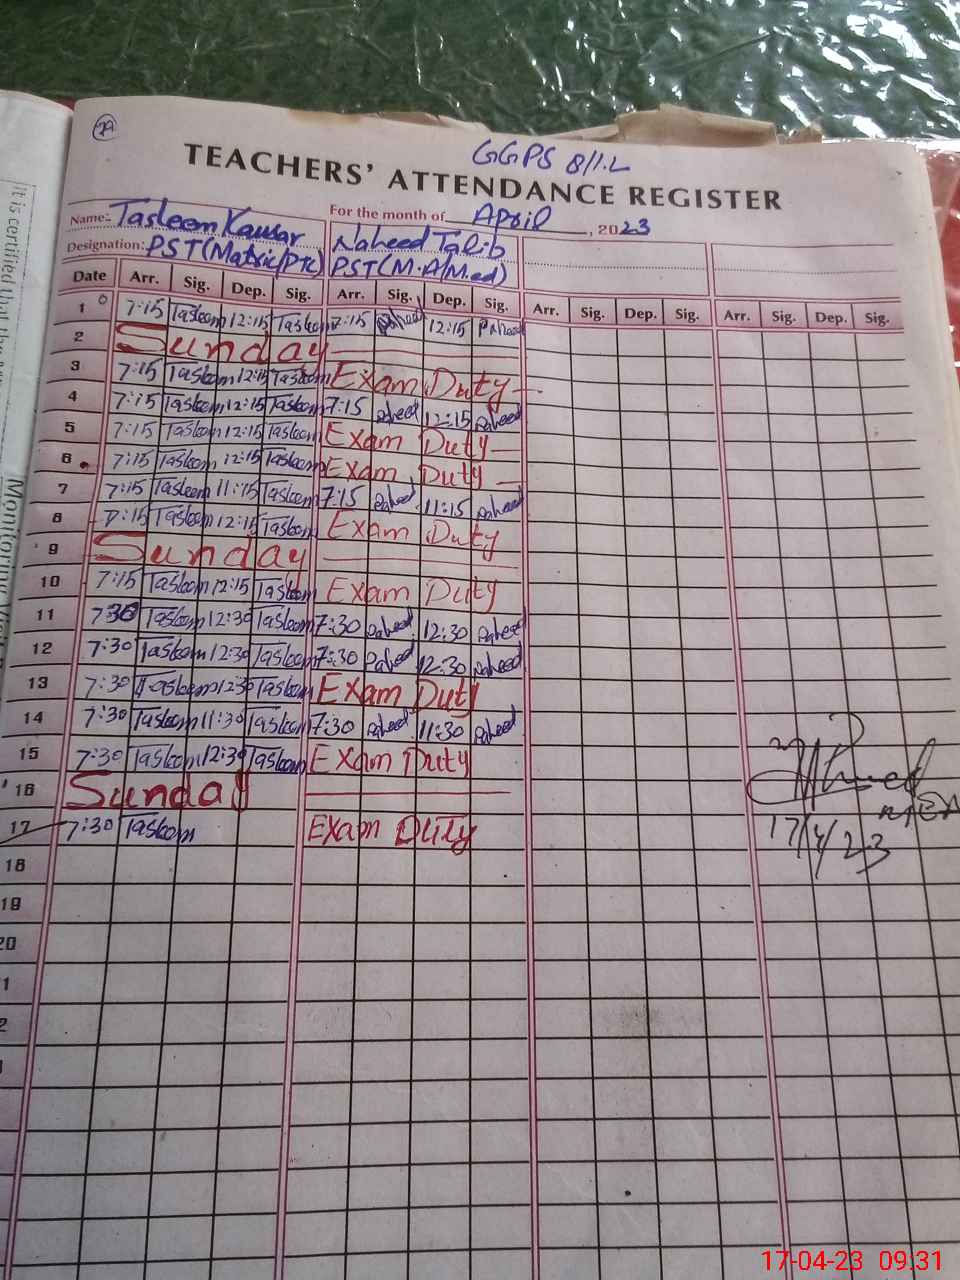 29
GGPS 8/1.L
TEACHERS' ATTENDANCE REGISTER
Name:- Tasleem Kausar For the month of April, 2023
Naheed Talib
Designation: PST(Matric/PTC) PST(M.A/M.ed)
Date Arr. Sig. Dep. Sig. Arr. Sig. Dep. Sig. Arr. Sig. Dep. Sig. Arr. Sig. Dep. Sig.
1 7:15 Tasleem 12:15 Tasleem 7:15 Naheed 12:15 Naheed
2 Sunday
3 7:15 Tasleem 12:15 Tasleem Exam Duty
4 7:15 Tasleem 12:15 Tasleem 7:15 Naheed 12:15 Naheed
5 7:15 Tasleem 12:15 Tasleem Exam Duty
6 7:15 Tasleem 12:15 Tasleem Exam Duty
7 7:15 Tasleem 11:15 Tasleem 7:15 Naheed 11:15 Naheed
8 7:15 Tasleem 12:15 Tasleem Exam Duty
9 Sunday
10 7:15 Tasleem 12:15 Tasleem Exam Duty
11 7:30 Tasleem 12:30 Tasleem 7:30 Naheed 12:30 Naheed
12 7:30 Tasleem 12:30 Tasleem 7:30 Naheed 12:30 Naheed
13 7:30 Tasleem 12:30 Tasleem Exam Duty
14 7:30 Tasleem 11:30 Tasleem 7:30 Naheed 11:30 Naheed
15 7:30 Tasleem 12:30 Tasleem Exam Duty
16 Sunday
17 7:30 Tasleem Exam Duty
17/4/23
18
19
20
It is certified that the
Monitoring
17-04-23 09:31